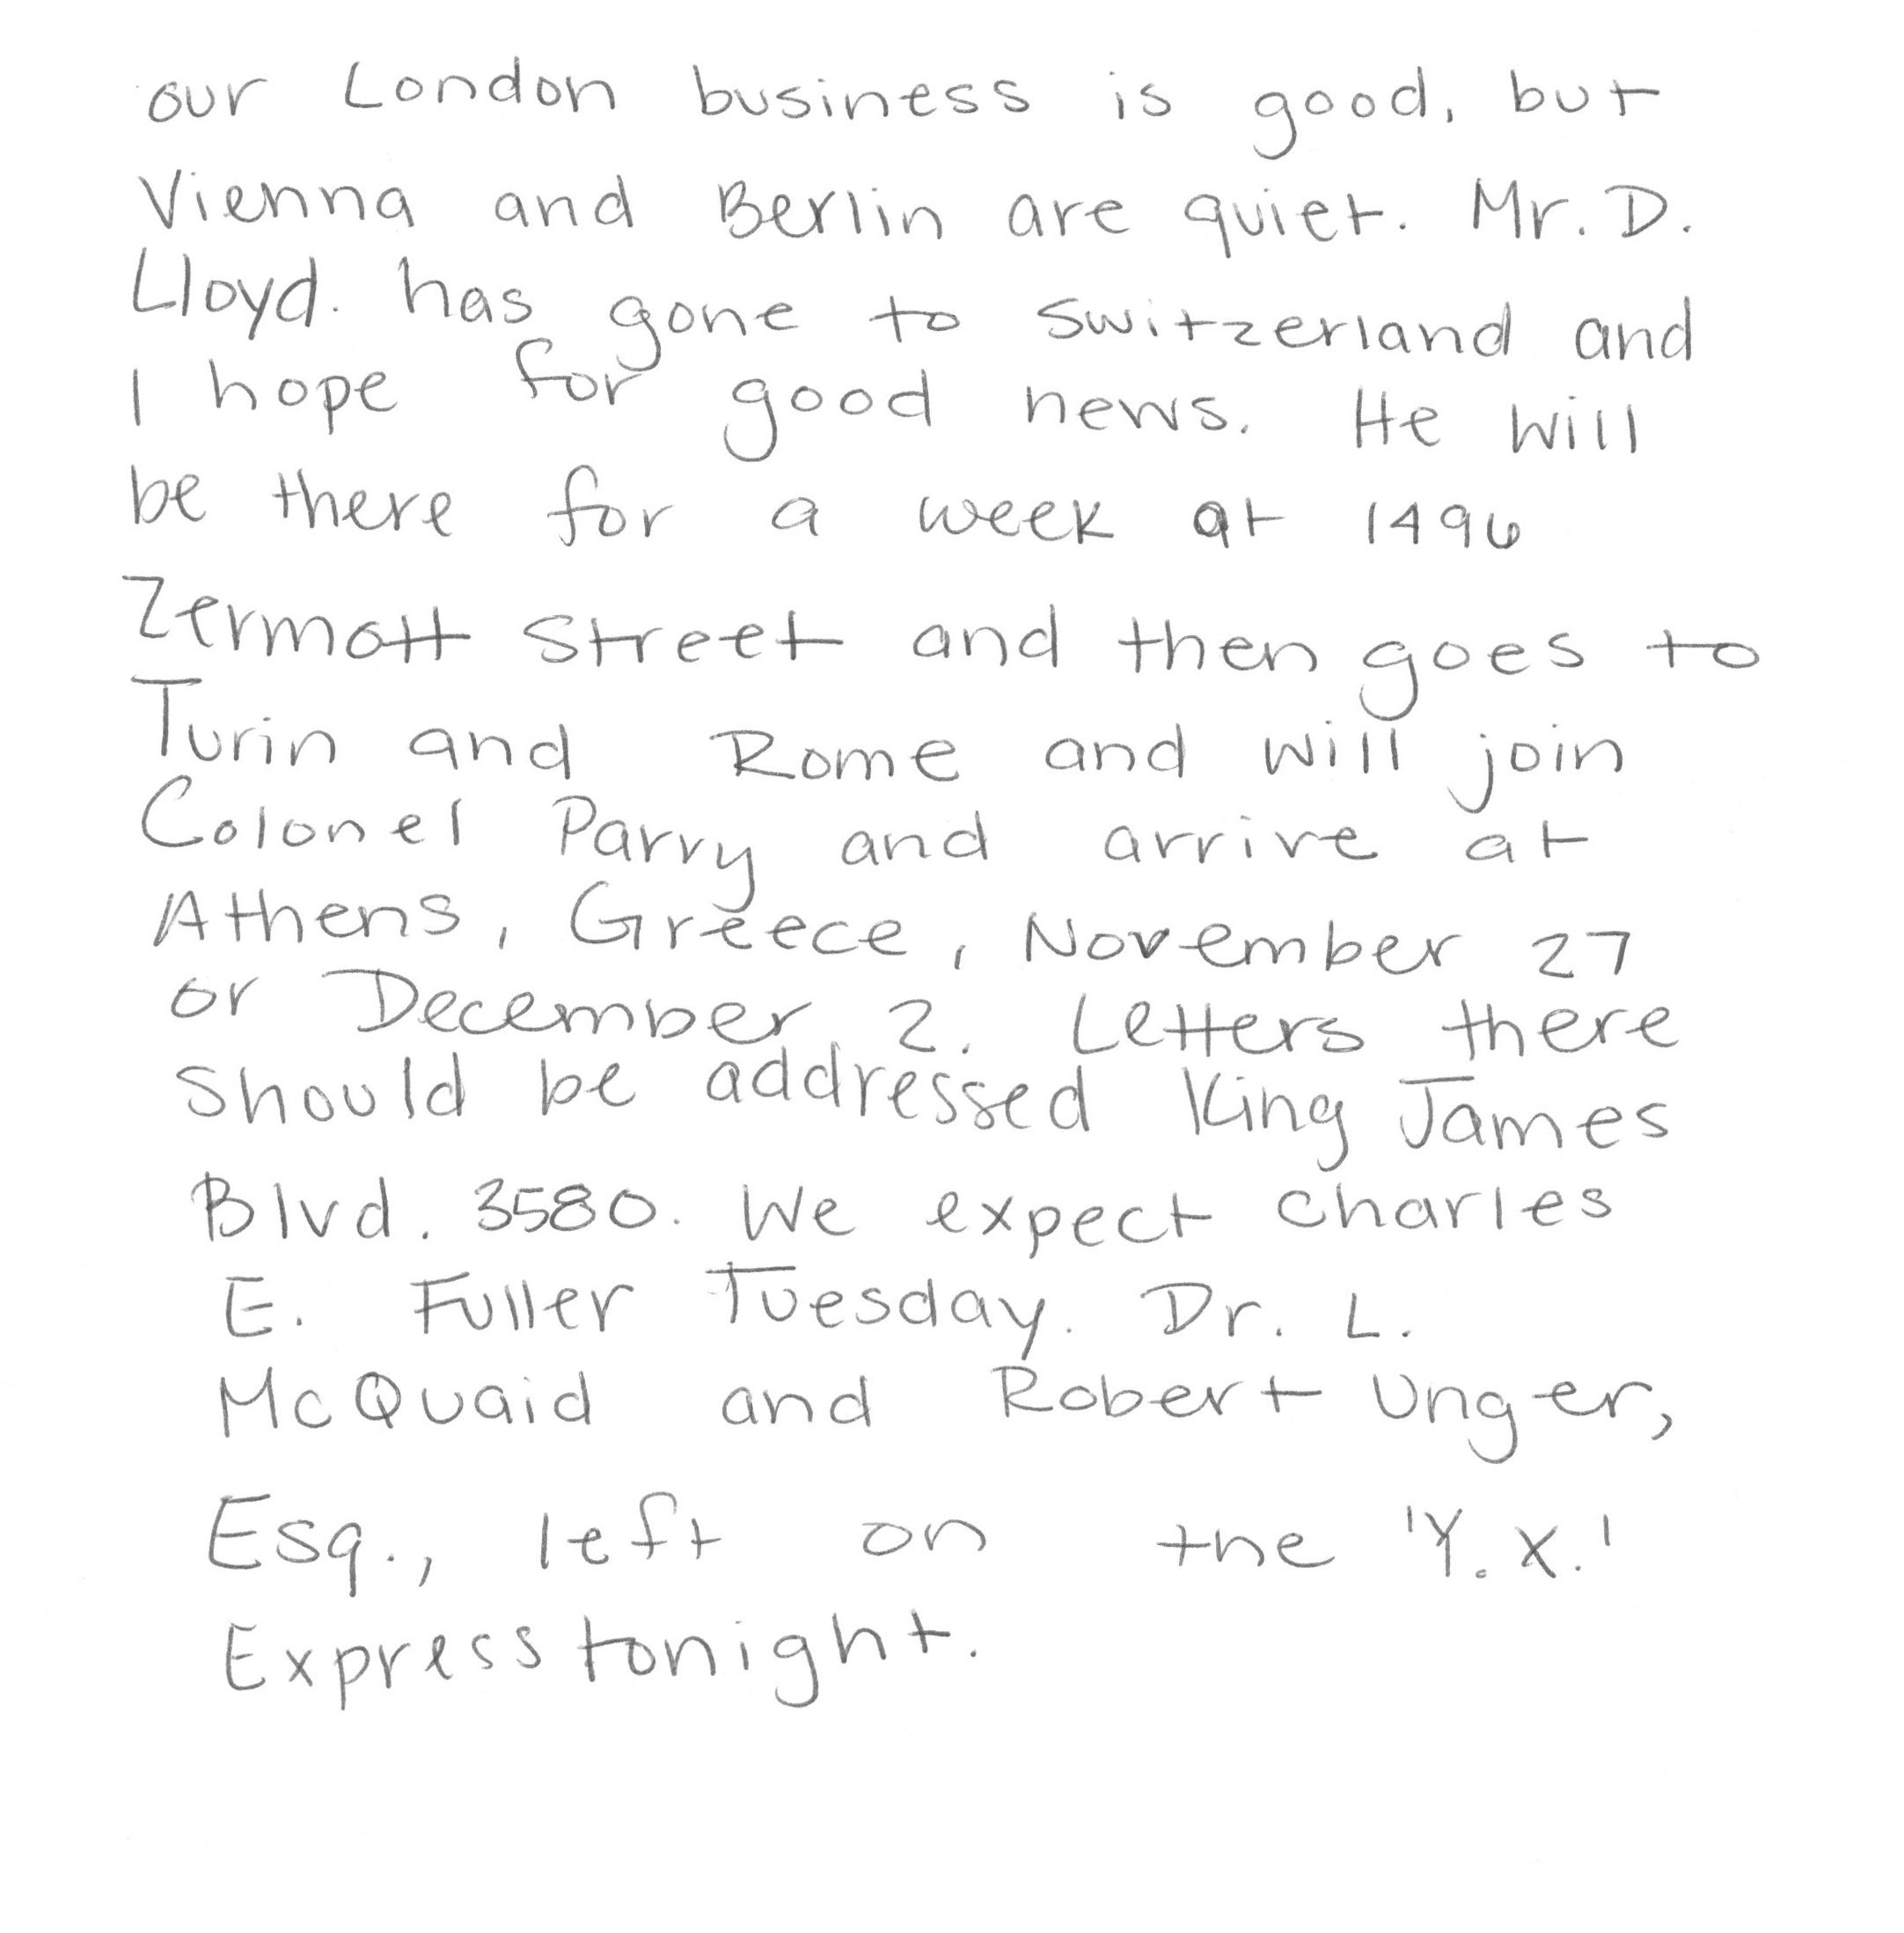 our London business is good, but
Vienna and Berlin are quiet. Mr. D.
Lloyd. has gone to Switzerland and
I hope for good news. He will
be there for a week at 1496
Zermott Street and then goes to
Turin and Rome and will join
Colonel Parry and arrive at
Athens, Greece, November 27
or December 2. Letters there
should be addressed King James
Blvd. 3580. We expect Charles
E. Fuller Tuesday. Dr. L.
McQuaid and Robert Unger,
Esq., left on the 'Y.X.'
Express tonight.